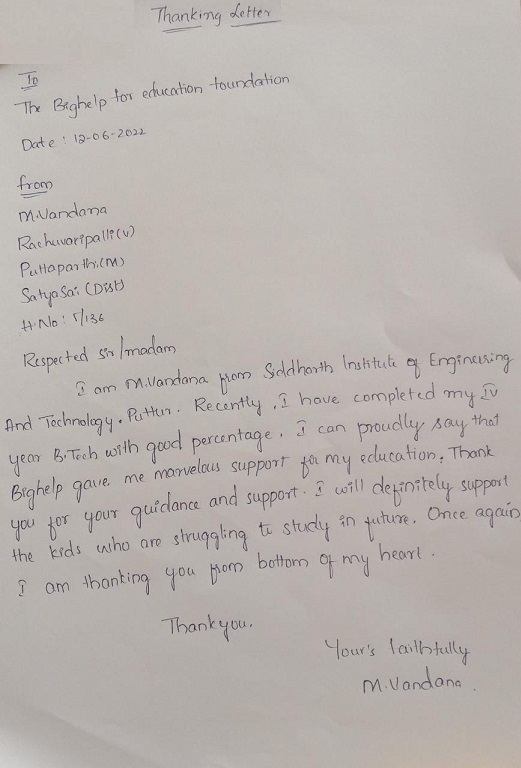 Thanking Letter
To
The Bighelp for education foundation
Date : 12-06-2022
from
M.Vandana
Rachuvaripalli(v)
Puttaparthi.(M)
Satya Sai (Dist)
H.No : 5/136
Respected sir/madam
I am M.Vandana from Siddharth Institute of Engineering
And Technology. Puttur. Recently, I have completed my IV
year B.Tech with good percentage. I can proudly say that
Bighelp gave me marvelous support for my education. Thank
you for your guidance and support. I will definitely support
the kids who are struggling to study in future. Once again
I am thanking you from bottom of my heart.
Thankyou.
Your's faithfully
M.Vandana.